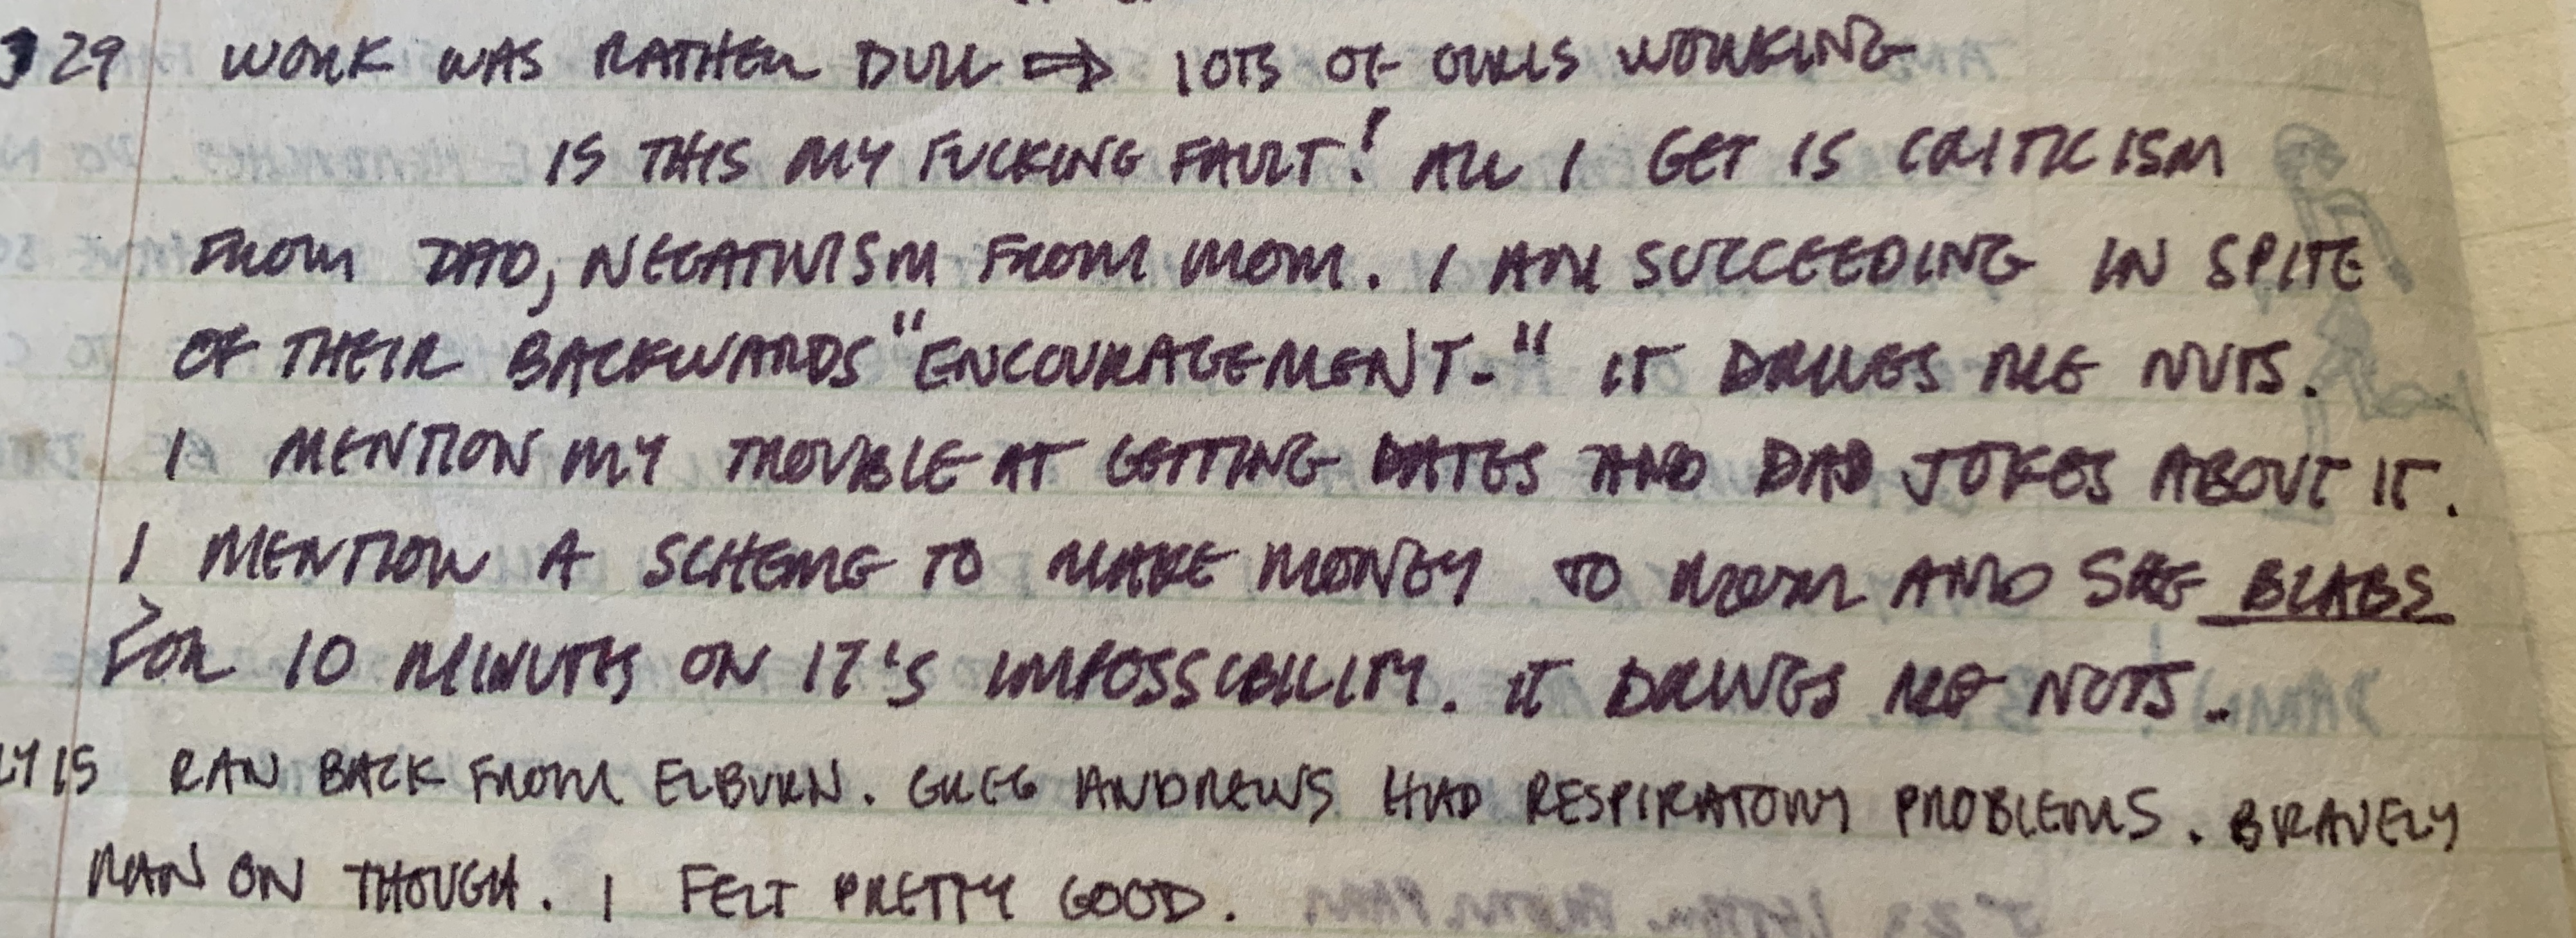 29 WORK WAS RATHER DULL ⇒ LOTS OF GIRLS WORKING
IS THIS MY FUCKING FAULT! ALL I GET IS CRITICISM
FROM DAD, NEGATIVISM FROM MOM. I AM SUCCEEDING IN SPITE
OF THEIR BACKWARDS "ENCOURAGEMENT." IT DRIVES ME NUTS.
I MENTION MY TROUBLE AT GETTING DATES AND DAD JOKES ABOUT IT.
I MENTION A SCHEME TO MAKE MONEY TO MOM AND SHE BLABS
FOR 10 MINUTES ON IT'S IMPOSSIBILITY. IT DRIVES ME NUTS..
LY 15 RAN BACK FROM ELBURN. GREG ANDREWS HAD RESPIRATORY PROBLEMS. BRAVELY
RAN ON THOUGH. I FELT PRETTY GOOD.